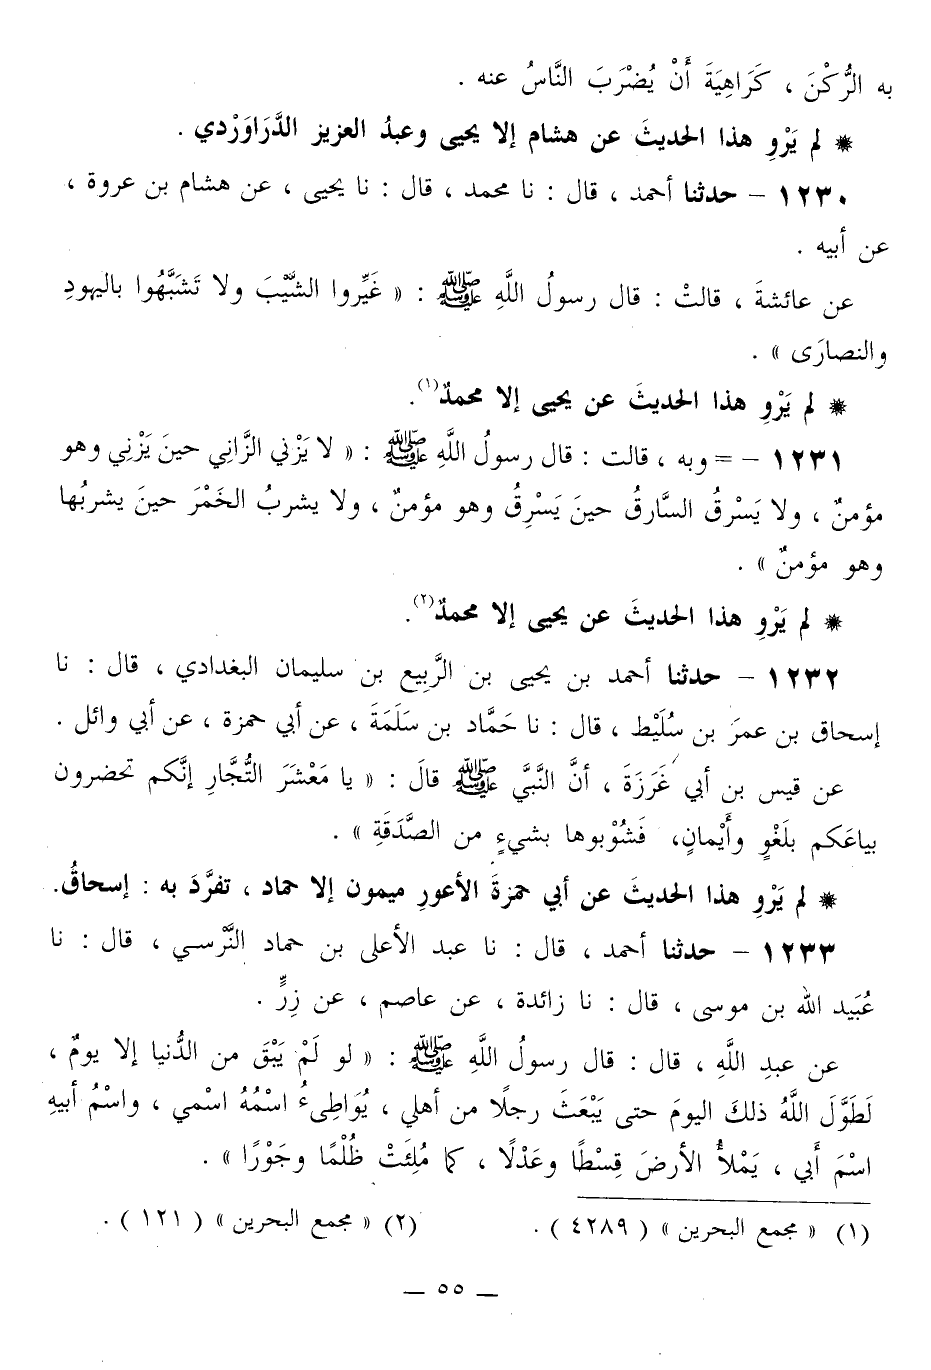 به الرُّكْنَ ، كَرَاهِيَةَ أَنْ يُضْرَبَ النَّاسُ عنه .
* لم يَرْوِ هذا الحديثَ عن هشام إلا يحيى وعبدُ العزيز الدَّرَاوَرْدي .
١٢٣٠ – حدثنا أحمد ، قال : نا محمد ، قال : نا يحيى ، عن هشام بن عروة ،
عن أبيه .
عن عائشةَ ، قالتْ : قال رسولُ اللَّهِ ﷺ : « غَيِّروا الشَّيْبَ ولا تَشَبَّهُوا باليهودِ
والنصارَى » .
* لم يَرْوِ هذا الحديثَ عن يحيى إلا محمدٌ(١).
١٢٣١ – = وبه ، قالت : قال رسولُ اللَّهِ ﷺ : « لا يَزْني الزَّانِي حينَ يَزْنِي وهو
مؤمنٌ ، ولا يَسْرقُ السَّارقُ حينَ يَسْرِقُ وهو مؤمنٌ ، ولا يشربُ الخَمْرَ حينَ يشربُها
وهو مؤمنٌ » .
* لم يَرْوِ هذا الحديثَ عن يحيى إلا محمدٌ(٢).
١٢٣٢ – حدثنا أحمد بن يحيى بن الرَّبِيع بن سليمان البغدادي ، قال : نا
إسحاق بن عمرَ بن سُلَيْط ، قال : نا حَمَّاد بن سَلَمَةَ ، عن أبي حمزة ، عن أبي وائل .
عن قيس بن أبي غَرَزَةَ ، أنَّ النَّبيَّ ﷺ قالَ : « يا مَعْشَرَ التُّجَّارِ إنَّكم تحضرون
بياعَكم بلَغْوٍ وأَيْمانٍ، فَشُوْبوها بشيءٍ من الصَّدَقَةِ » .
* لم يَرْوِ هذا الحديثَ عن أبي حمزةَ الأعورِ ميمون إلا حماد ، تفرَّدَ به : إسحاقُ.
١٢٣٣ – حدثنا أحمد ، قال : نا عبد الأعلى بن حماد النَّرْسي ، قال : نا
عُبَيد الله بن موسى ، قال : نا زائدة ، عن عاصم ، عن زِرٍّ .
عن عبدِ اللَّهِ ، قال : قال رسولُ اللَّهِ ﷺ : « لو لَمْ يَبْقَ من الدُّنيا إلا يومٌ ،
لَطَوَّلَ اللَّهُ ذلكَ اليومَ حتى يَبْعَثَ رجلًا من أهلي ، يُوَاطِىءُ اسْمُهُ اسْمي ، واسْمُ أبيهِ
اسْمَ أَبي ، يَمْلأُ الأرضَ قِسْطًا وعَدْلًا ، كما مُلِئَتْ ظُلْمًا وجَوْرًا » .
(١) « مجمع البحرين » ( ٤٢٨٩ ) . (٢) « مجمع البحرين » ( ١٢١ ) .
— ٥٥ —